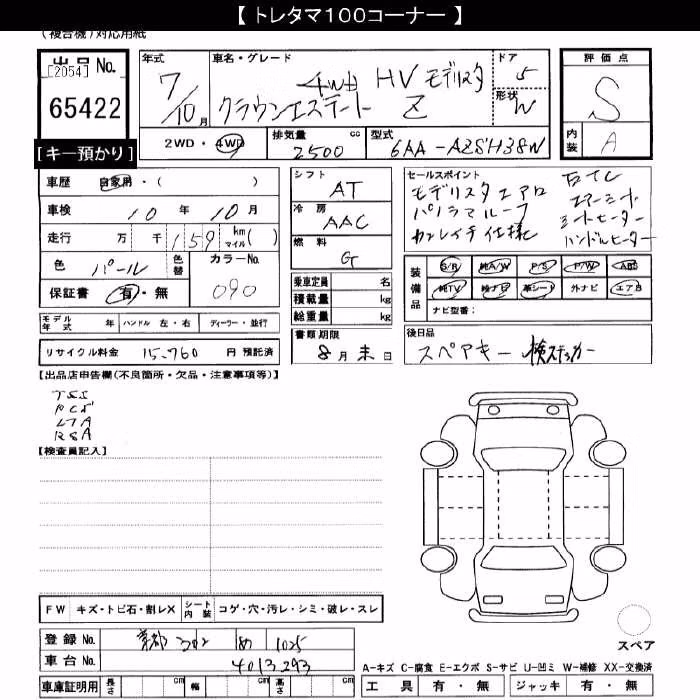 【 トレタマ100コーナー 】
(複合機)対応用紙
出品 No. [2054] 65422
[キー預かり]
年式 7/10月
車名・グレード 4WD HV モデリスタ
クラウンエステート Z
ドア 5
形状 W
評価点 S
内装 A
2WD・4WD 排気量 2500 cc 型式 6AA-AZSH38W
車歴 自家用・( )
車検 10年 10月
走行 万 千 159 km マイル ( )
色 パール 色替 カラーNo. 090
保証書 有・無
シフト AT
冷房 AAC
燃料 G
乗車定員 名
積載量 kg
総重量 kg
セールスポイント
モデリスタエアロ ETC
パノラマルーフ エアーシート
シートヒーター
ハンドルヒーター
装備品 S/R 純A/W P/S P/W ABS
純TV 純ナビ 革シート 外ナビ エアB
ナビ型番:
モデル年式 年 ハンドル 左・右 ディーラー・並行
リサイクル料金 15,760 円 預託済
書類期限 8月末日
後日品 スペアキー 検ステッカー
【出品店申告欄(不良箇所・欠品・注意事項等)】
TSS
PCS
LTA
RSA
【検査員記入】
FW キズ・トビ石・割レX シート内装 コゲ・穴・汚レ・シミ・破レ・スレ
登録 No. 京都 302 1025
車台 No. 4013293
車庫証明用 長さ cm 幅 cm 高さ cm
スペア
A-キズ C-腐食 E-エクボ S-サビ U-凹ミ W-補修 XX-交換済
工具 有・無 ジャッキ 有・無